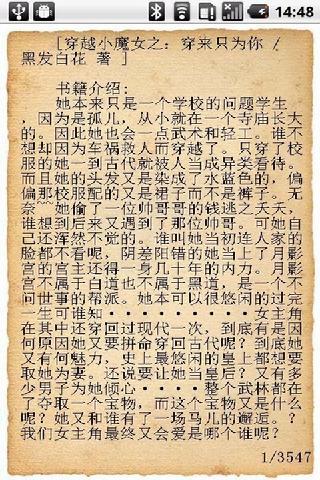 14:48
[穿越小魔女之：穿来只为你 /
黑发白花 著 ]
书籍介绍：
她本来只是一个学校的问题学生
，因为是孤儿，从小就在一个寺庙长大
的。因此她也会一点武术和轻工。谁不
想却因为车祸救人而穿越了。只穿了校
服的她一到古代就被人当成异类看待。
而且她的头发又是染成了水蓝色的，偏
偏那校服配的又是裙子而不是裤子。无
奈~~她偷了一位帅哥哥的钱逃之夭夭，
谁想到后来又遇到了那位帅哥。可她自
己还浑然不觉的。谁叫她当初连人家的
脸都不看呢，阴差阳错的她当上了月影
宫的宫主还得一身几十年的内力。月影
宫不属于白道也不属于黑道，是一个不
问世事的帮派。她本可以很悠闲的过完
一生可谁知·········女主角
在其中还穿回过现代一次，到底有是因
何原因她又要拼命穿回古代呢？到底她
又有何魅力，史上最悠闲的皇上都想要
取她为妻。还说要让她当皇后？又有多
少男子为她倾心·····整个武林都在
了夺取一个宝物，而这个宝物又是什么
呢？她又和谁有了一场马儿的邂逅。？
我们女主角最终又会爱是哪个谁呢？
1/3547